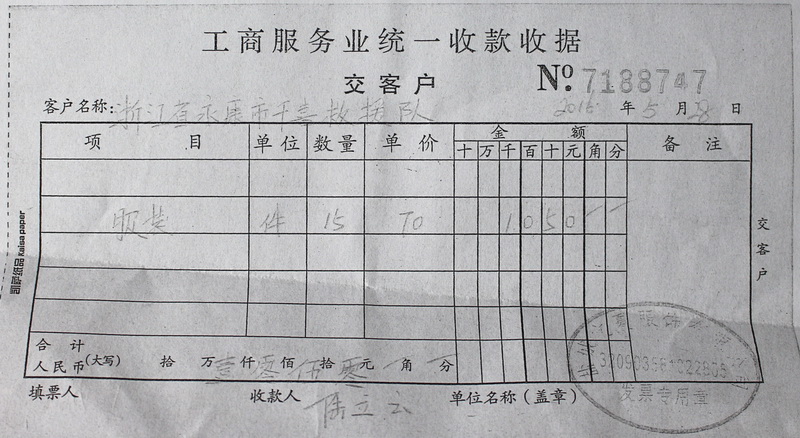 工商服务业统一收款收据
交客户 No. 7188747
客户名称：浙江省永康市 救援队 2015 年 5 月 28 日
项目 单位 数量 单价 金额 备注
十 万 千 百 十 元 角 分
服装 件 15 70 1 0 5 0 - -
合计
人民币(大写) 拾 万 壹 仟 零 佰 伍 拾 零 元 角 分
填票人 收款人 陈立云 单位名称（盖章）
交客户
凯萨纸品 Kaisa paper
服饰
发票专用章